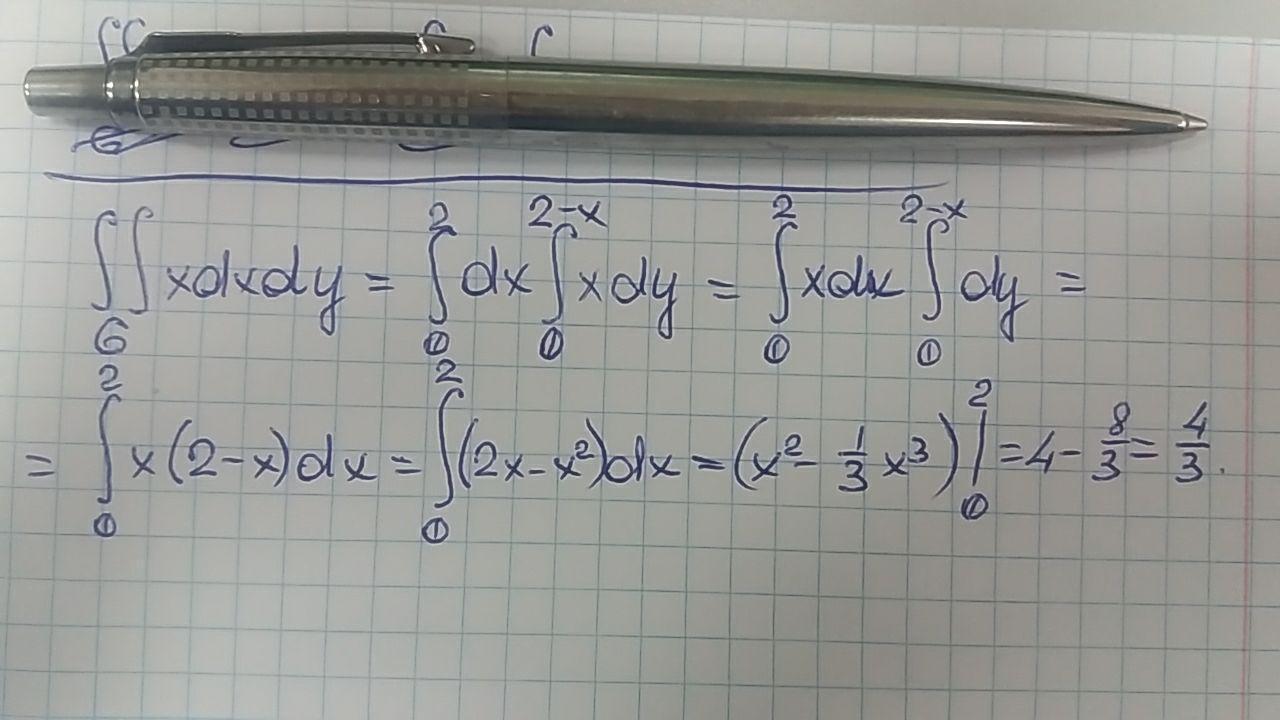 ∫∫_G xdxdy = ∫_0^2 dx ∫_0^{2-x} xdy = ∫_0^2 xdx ∫_0^{2-x} dy =
= ∫_0^2 x(2-x)dx = ∫_0^2 (2x-x²)dx = (x² - 1/3 x³)|_0^2 = 4 - 8/3 = 4/3.